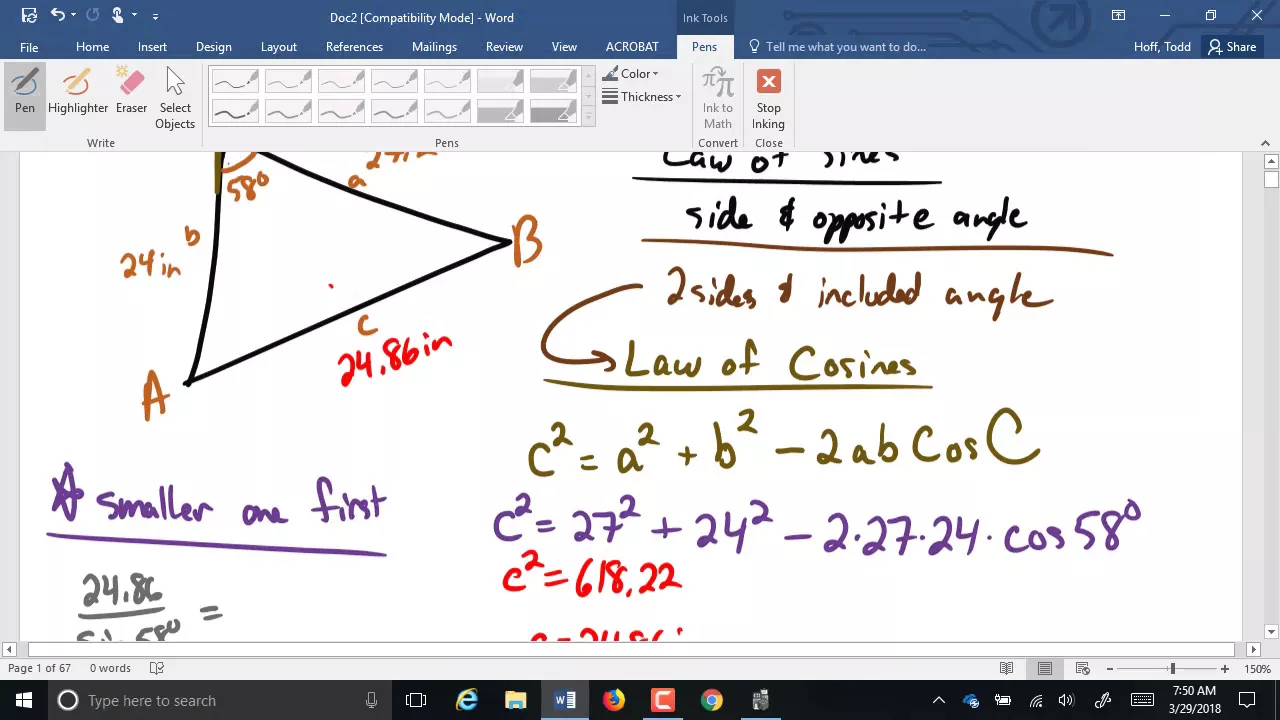 Doc2 [Compatibility Mode] - Word
Ink Tools
File Home Insert Design Layout References Mailings Review View ACROBAT Pens Tell me what you want to do... Hoff, Todd Share
Pen Highlighter Eraser Select Objects
Color
Thickness
Ink to Math
Stop Inking
Write Pens Convert Close
Law of Sines
side & opposite angle
2 sides & included angle
Law of Cosines
c² = a² + b² - 2ab Cos C
c² = 27² + 24² - 2·27·24·cos 58°
c² = 618.22
c = 24.86 i
58°
a
b
24 in
B
c
24.86 in
A
smaller one first
24.86
sin 58°
=
Page 1 of 67 0 words 150%
Type here to search
7:50 AM
3/29/2018